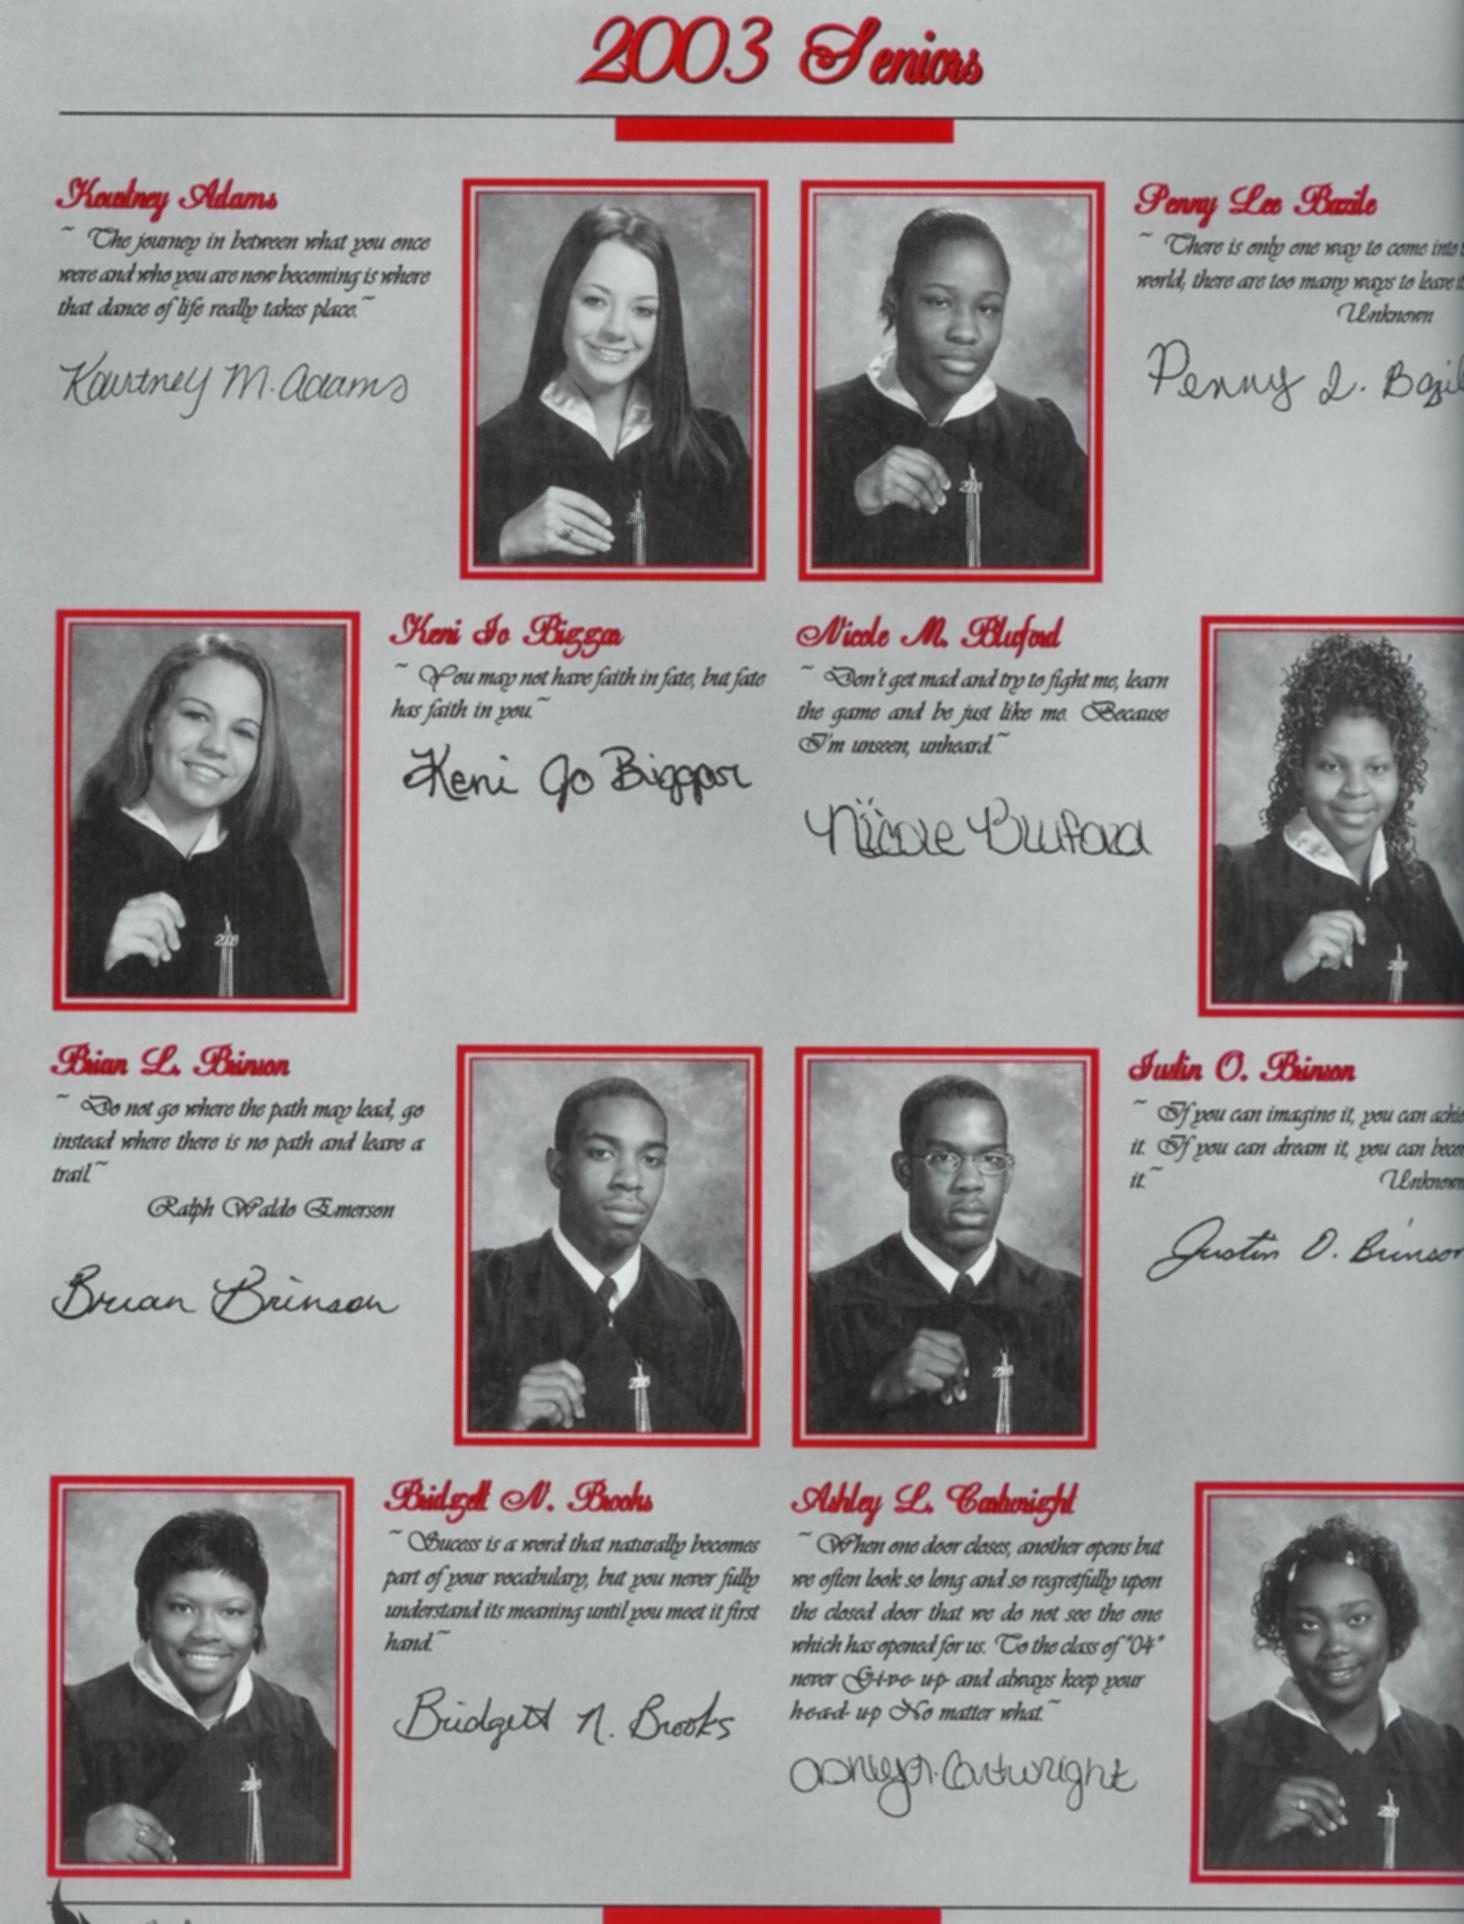 2003 Seniors
Kourtney Adams
~ The journey in between what you once
were and who you are now becoming is where
that dance of life really takes place.~
Kourtney M. Adams
Penny Lee Bazile
~ There is only one way to come into
world, there are too many ways to leave
Unknown
Penny L. Bazil
Keni Jo Biggar
~ You may not have faith in fate, but fate
has faith in you.~
Keni Jo Biggar
Nicole M. Bluford
~ Don't get mad and try to fight me, learn
the game and be just like me. Because
I'm unseen, unheard.~
Nicole Bluford
Brian L. Brinson
~ Do not go where the path may lead, go
instead where there is no path and leave a
trail.~
Ralph Waldo Emerson
Brian Brinson
Justin O. Brinson
~ If you can imagine it, you can achie
it. If you can dream it, you can beco
it.~ Unknown
Justin O. Brinson
Bridgett N. Brooks
~ Sucess is a word that naturally becomes
part of your vocabulary, but you never fully
understand its meaning until you meet it first
hand.~
Bridgett N. Brooks
Ashley L. Cartwright
~ When one door closes, another opens but
we often look so long and so regretfully upon
the closed door that we do not see the one
which has opened for us. To the class of "04"
never G-i-v-e- u-p- and always keep your
h-e-a-d- u-p No matter what.~
Ashley L. Cartwright